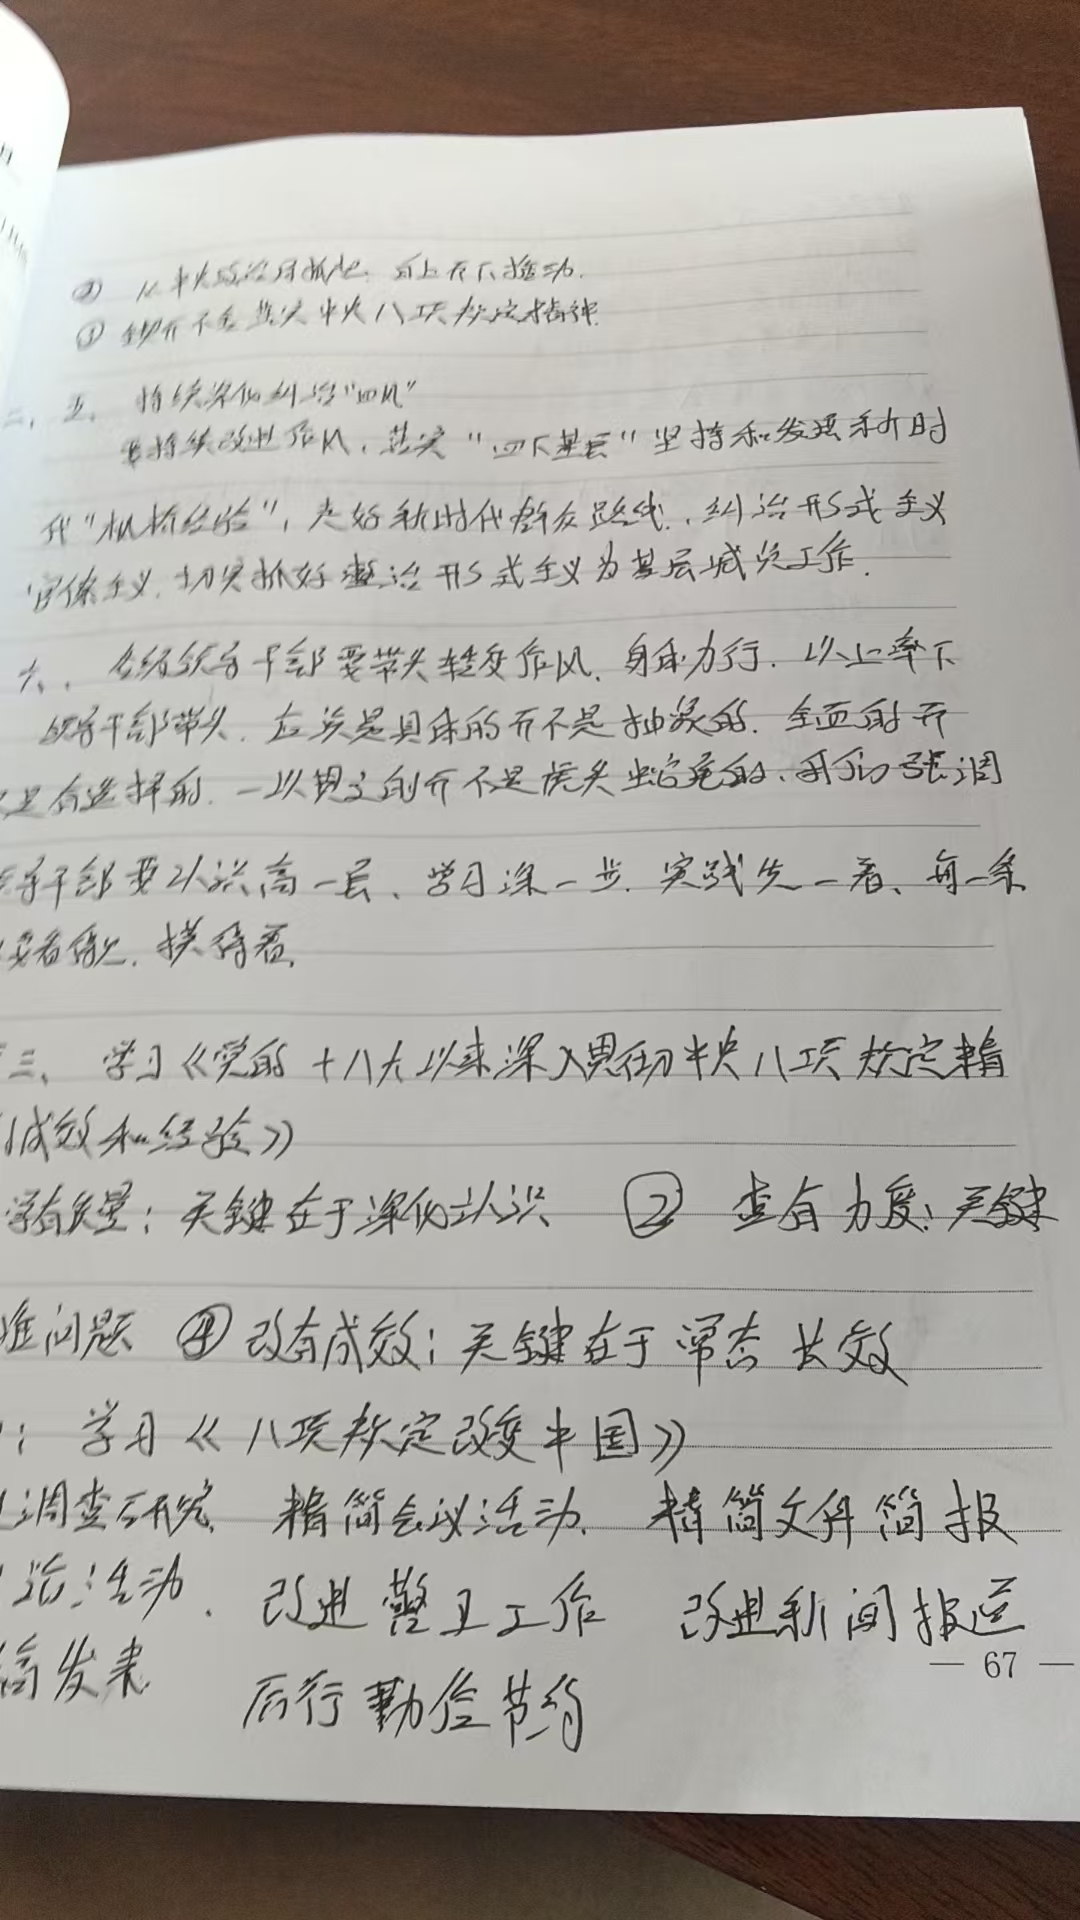 ② 从中央政治局抓起、自上而下推动.
③ 锲而不舍落实中央八项规定精神.
二、五、持续深化纠治"四风"
要持续改进作风，落实"四下基层"坚持和发展新时
代"枫桥经验"，走好新时代群众路线.，纠治形式主义
官僚主义.切实抓好整治形式主义为基层减负工作.
六、各级领导干部要带头转变作风、身体力行.以上率下
领导干部带头.应该是具体的而不是抽象的.全面的而
是有选择的.一以贯之的而不是虎头蛇尾的、我们强调
导干部要认识高一层、学习深一步.实践先一着、每一条
要着做.摸待着.
三、学习《党的十八大以来深入贯彻中央八项规定精
成效和经验》
学有质量：关键在于深化认识 ② 查有力度：关键
难问题 ④改有成效：关键在于常态长效
：学习《八项规定改变中国》
调查研究、精简会议活动、精简文件简报
活动. 改进警卫工作 改进新闻报道
稿发表 厉行勤俭节约
— 67 —